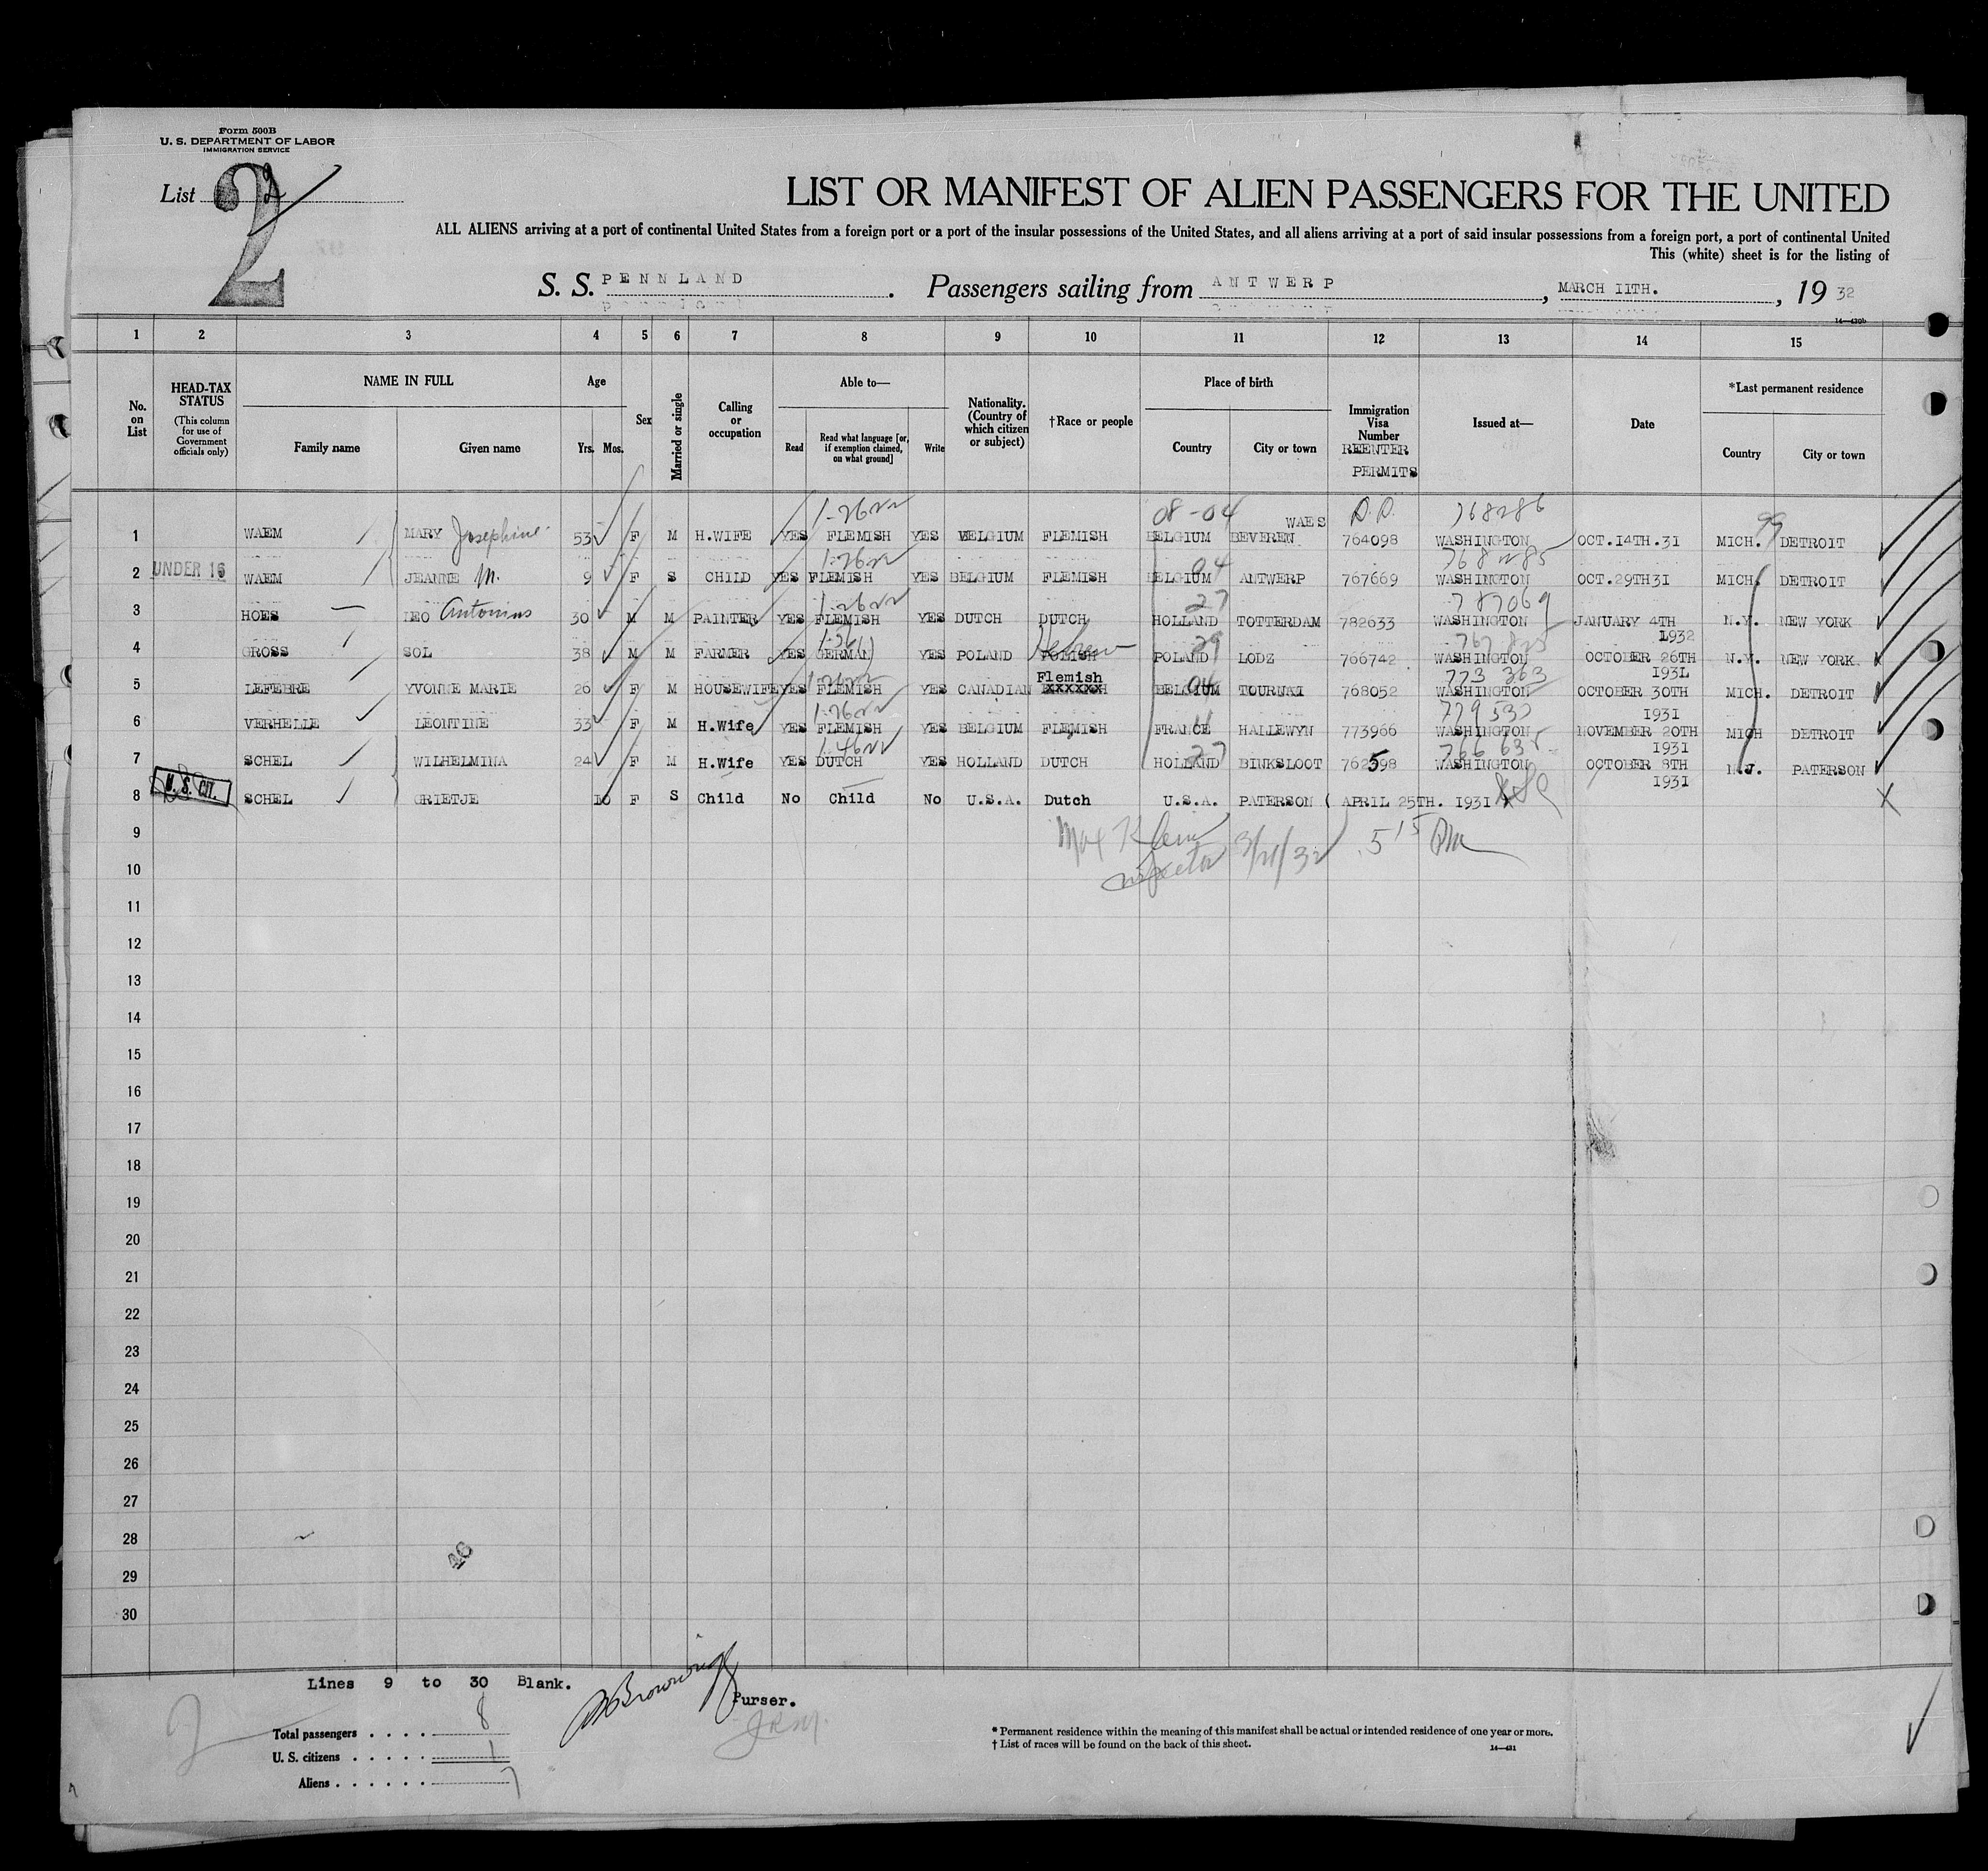 Form 500B
U. S. DEPARTMENT OF LABOR
IMMIGRATION SERVICE
List 2
2
LIST OR MANIFEST OF ALIEN PASSENGERS FOR THE UNITED
ALL ALIENS arriving at a port of continental United States from a foreign port or a port of the insular possessions of the United States, and all aliens arriving at a port of said insular possessions from a foreign port, a port of continental United
This (white) sheet is for the listing of
S. S. PENNLAND. Passengers sailing from ANTWERP, MARCH 11TH., 19 32
14—430b
1 2 3 4 5 6 7 8 9 10 11 12 13 14 15
No. on List
HEAD-TAX STATUS
(This column for use of Government officials only)
NAME IN FULL
Family name Given name
Age
Yrs. Mos.
Sex
Married or single
Calling or occupation
Able to—
Read
Read what language [or, if exemption claimed, on what ground]
Write
Nationality. (Country of which citizen or subject)
†Race or people
Place of birth
Country City or town
Immigration Visa Number
REENTER PERMITS
Issued at—
Date
*Last permanent residence
Country City or town
1-26 08-04 WAES 768286 99
1 WAEM MARY Josephine 53 F M H.WIFE YES FLEMISH YES BELGIUM FLEMISH BELGIUM BEVEREN 764098 WASHINGTON OCT.14TH.31 MICH. DETROIT
1-26 04 768285
2 UNDER 16 WAEM JEANNE M. 9 F S CHILD YES FLEMISH YES BELGIUM FLEMISH BELGIUM ANTWERP 767669 WASHINGTON OCT.29TH31 MICH. DETROIT
1-26 27 787069
3 HOES LEO Antonius 30 M M PAINTER YES FLEMISH YES DUTCH DUTCH HOLLAND TOTTERDAM 782633 WASHINGTON JANUARY 4TH 1932 N.Y. NEW YORK
Hebrew 29
4 GROSS SOL 38 M M FARMER YES GERMAN YES POLAND POLISH POLAND LODZ 766742 WASHINGTON OCTOBER 26TH 1931 N.Y. NEW YORK
1-26 Flemish 04 773 363
5 LEFEBRE YVONNE MARIE 26 F M HOUSEWIFE YES FLEMISH YES CANADIAN BELGIUM TOURNAI 768052 WASHINGTON OCTOBER 30TH 1931 MICH. DETROIT
1-26
6 VERHELLE LEONTINE 33 F M H.Wife YES FLEMISH YES BELGIUM FLEMISH FRANCE HALLEWYN 773966 WASHINGTON NOVEMBER 20TH 1931 MICH DETROIT
1-46 27
7 SCHEL WILHELMINA 24 F M H.Wife YES DUTCH YES HOLLAND DUTCH HOLLAND BINKSLOOT 762598 WASHINGTON OCTOBER 8TH 1931 N.J. PATERSON
8 U. S. CIT. SCHEL GRIETJE 10 F S Child No Child No U.S.A. Dutch U.S.A. PATERSON ( APRIL 25TH. 1931 X
9 Max Klein
10 Inspector 3/21/32 5 15 PM
11
12
13
14
15
16
17
18
19
20
21
22
23
24
25
26
27
28
29
30
Lines 9 to 30 Blank.
Purser.
2
Total passengers . . . . 8
U. S. citizens . . . . . 1
Aliens . . . . . . 7
* Permanent residence within the meaning of this manifest shall be actual or intended residence of one year or more.
† List of races will be found on the back of this sheet.
14—431